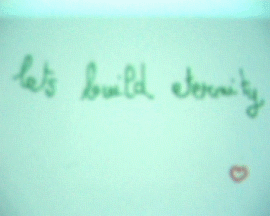 lets build eternity